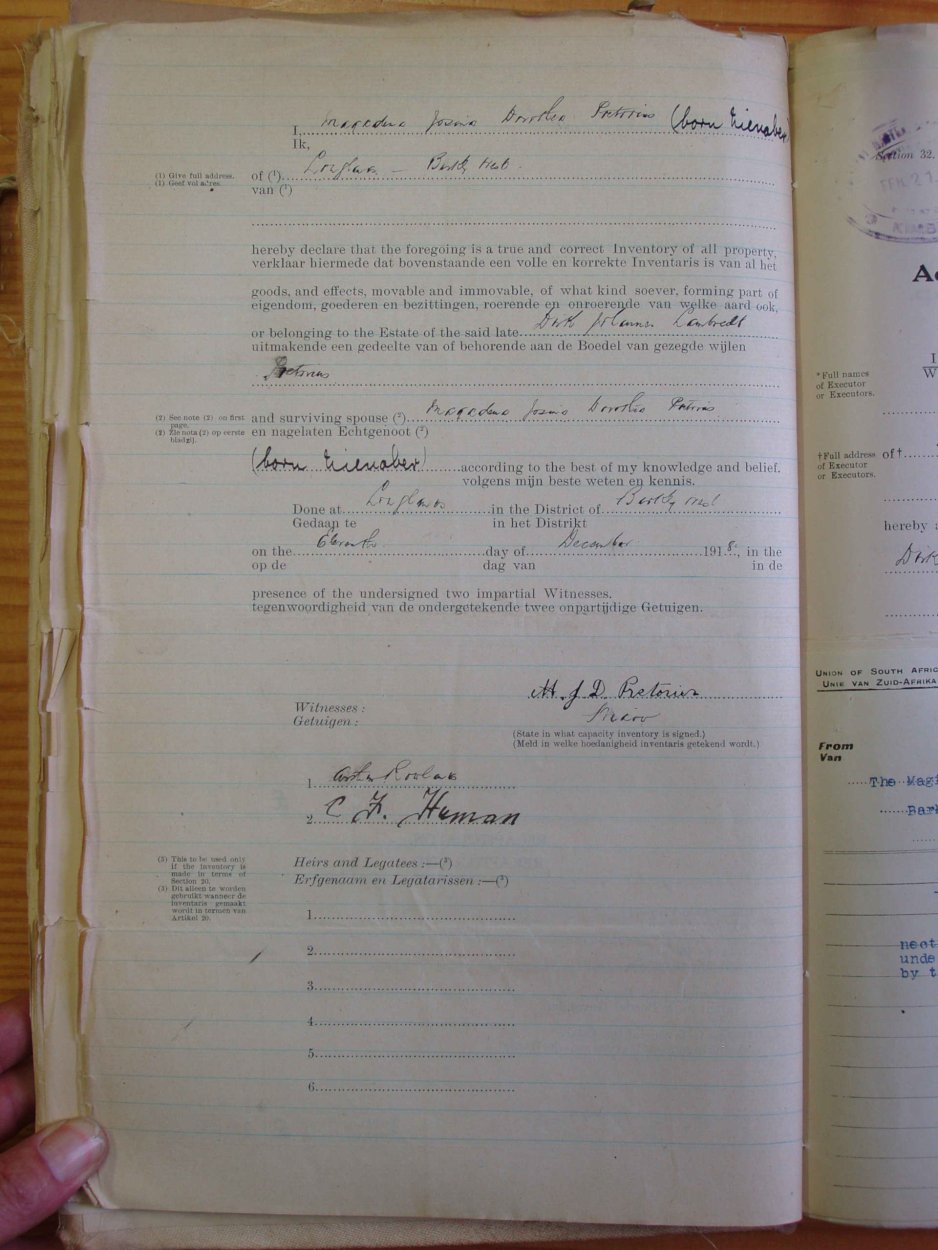 I, Magdalena Josina Dorothea Pretorius (born Nienaber)
Ik,
(1) Give full address.
(1) Geef vol adres.
of (¹) Longlands – Barkly West.
van (¹)
hereby declare that the foregoing is a true and correct Inventory of all property,
verklaar hiermede dat bovenstaande een volle en korrekte Inventaris is van al het
goods, and effects, movable and immovable, of what kind soever, forming part of
eigendom, goederen en bezittingen, roerende en onroerende van welke aard ook,
or belonging to the Estate of the said late Dirk Johannes Lambrecht
uitmakende een gedeelte van of behorende aan de Boedel van gezegde wijlen
Pretorius
(2) See note (2) on first
page.
(2) Zie nota (2) op eerste
bladzij.
and surviving spouse (²) Magdalena Josina Dorothea Pretorius
en nagelaten Echtgenoot (²)
(born Nienaber) according to the best of my knowledge and belief.
volgens mijn beste weten en kennis.
Done at Longlands in the District of Barkly West
Gedaan te in het Distrikt
on the Eleventh day of December 1918, in the
op de dag van in de
presence of the undersigned two impartial Witnesses.
tegenwoordigheid van de ondergetekende twee onpartijdige Getuigen.
M. J D. Pretorius
Witnesses :
Getuigen :
(State in what capacity inventory is signed.)
(Meld in welke hoedanigheid inventaris getekend wordt.)
1. Arthur
2. C F. Human
(3) This to be used only
if the inventory is
made in terms of
Section 20.
(3) Dit alleen te worden
gebruikt wanneer de
inventaris gemaakt
wordt in termen van
Artikel 20.
Heirs and Legatees :—(³)
Erfgenaam en Legatarissen :—(³)
1.
2.
3.
4.
5.
6.
Section 32.
KIMB
Ac
I
W
*Full names
of Executor
or Executors.
†Full address
of Executor
or Executors.
of †
hereby a
Dirk
UNION OF SOUTH AFRIC
UNIE VAN ZUID-AFRIKA
From
Van
The Magi
Bark
neet
unde
by t